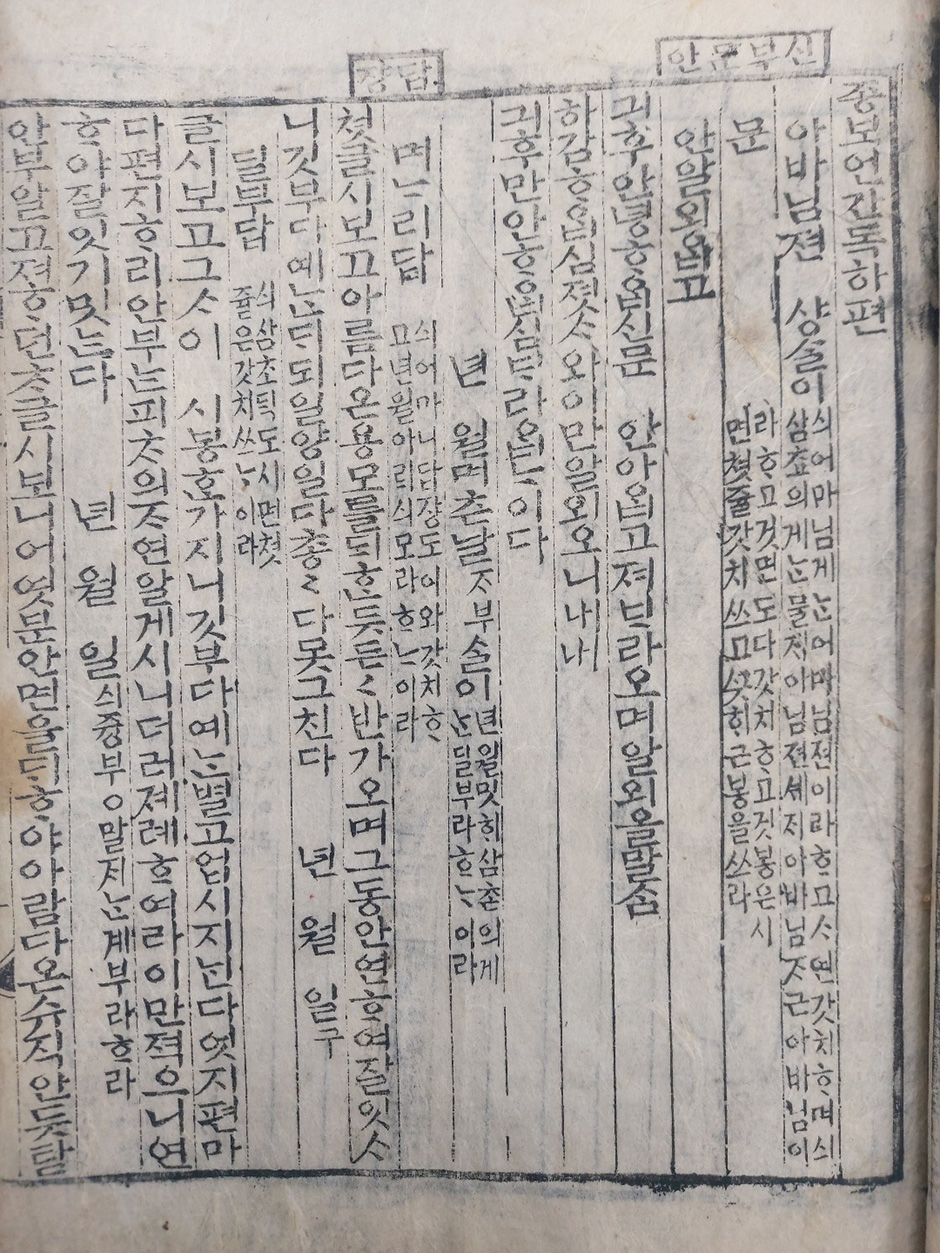 신부문안
답장
증보언간독하편
아바님젼 샹술이
싀어마님게ᄂᆞᆫ어마님젼이라ᄒᆞ고ᄉᆞ연갓치ᄒᆞ며싀
삼쵼의게ᄂᆞᆫ물재아님젼셰재아바님ᄌᆞ근아바님이
문
라ᄒᆞ고것면도다갓치ᄒᆞ고깃봉은시
면쳣쥴갓치쓰고ᄭᅳᆺᄒᆡ근봉을쓰라
안알외ᄋᆞᆸ고
긔후안녕ᄒᆞᄋᆞᆸ신문 안아ᄋᆞᆸ고져ᄇᆞ라오며알외올말ᄉᆞᆷ
하감ᄒᆞᄋᆞᆸ심졋ᄉᆞ와이만알외오니내내
긔후만안ᄒᆞᄋᆞᆸ심ᄇᆞ라ᄋᆞᆸᄂᆞ이다
년 월며츤날ᄌᆞ부술이
년월밋ᄒᆡ삼촌의게
ᄂᆞᆫ딜부라ᄒᆞᄂᆞ이라
며ᄂᆞ리답
싀어마니답쟝도이와갓치ᄒᆞ
고년월아리싀모라ᄒᆞᄂᆞ이라
쳣글시보고아름다온용모를ᄃᆡᄒᆞᆫ듯든든반가오며그동안연ᄒᆞ여잘잇ᄉᆞ
니깃부다예ᄂᆞᆫᄃᆡ되일양일다총총다못그친다 년 월 일구
딜부답
싀삼촌ᄃᆡᆨ도시면쳣
쥴은갓치쓰ᄂᆞ이라
글시보고그ᄉᆞ이 시봉ᄒᆞᆫ가지니깃부다예ᄂᆞᆫ별고업시지ᄂᆞᆫ다엿지편마
다편지ᄒᆞ리안부ᄂᆞᆫ피ᄎᆞ의ᄌᆞ연알게시니더러졔례ᄒᆞ여라이만젹으니연
ᄒᆞ야잘잇기밋ᄂᆞᆫ다 년 월 일싀즁부ᄋᆞ말재ᄂᆞᆫ계부라ᄒᆞ라
안부알고젼ᄒᆞ던ᄎᆞ글시보니어엿분안면을ᄃᆡᄒᆞ야아람다온슈작안듯탐